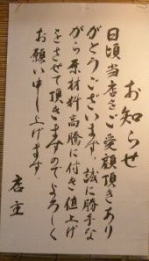 お知らせ
日頃当店をご愛顧頂きあり
がとうございます。誠に勝手な
がら原材料高騰に付き値上げ
をさせて頂きますのでよろしく
お願い申し上げます。
店主